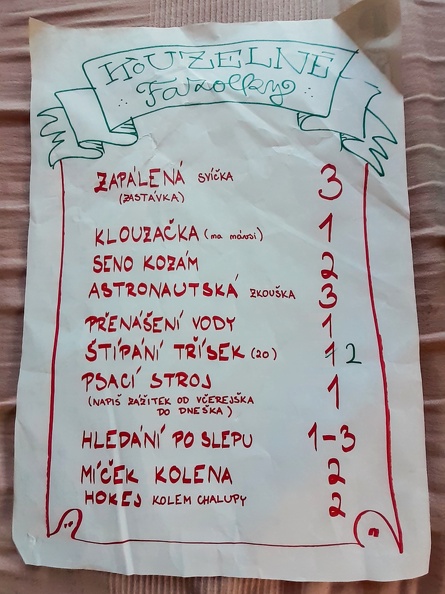 KOUZELNÉ
Fazolky
ZAPÁLENÁ SVÍČKA 3
(ZASTÁVKA)
KLOUZAČKA (na mávosi) 1
SENO KOZÁM 2
ASTRONAUTSKÁ ZKOUŠKA 3
PŘENÁŠENÍ VODY 1
ŠTÍPÁNÍ TŘÍSEK (20) 1 2
PSACÍ STROJ 1
(NAPIŠ ZÁŽITEK OD VČEREJŠKA
DO DNEŠKA)
HLEDÁNÍ PO SLEPU 1-3
MÍČEK KOLENA 2
HOKEJ KOLEM CHALUPY 2